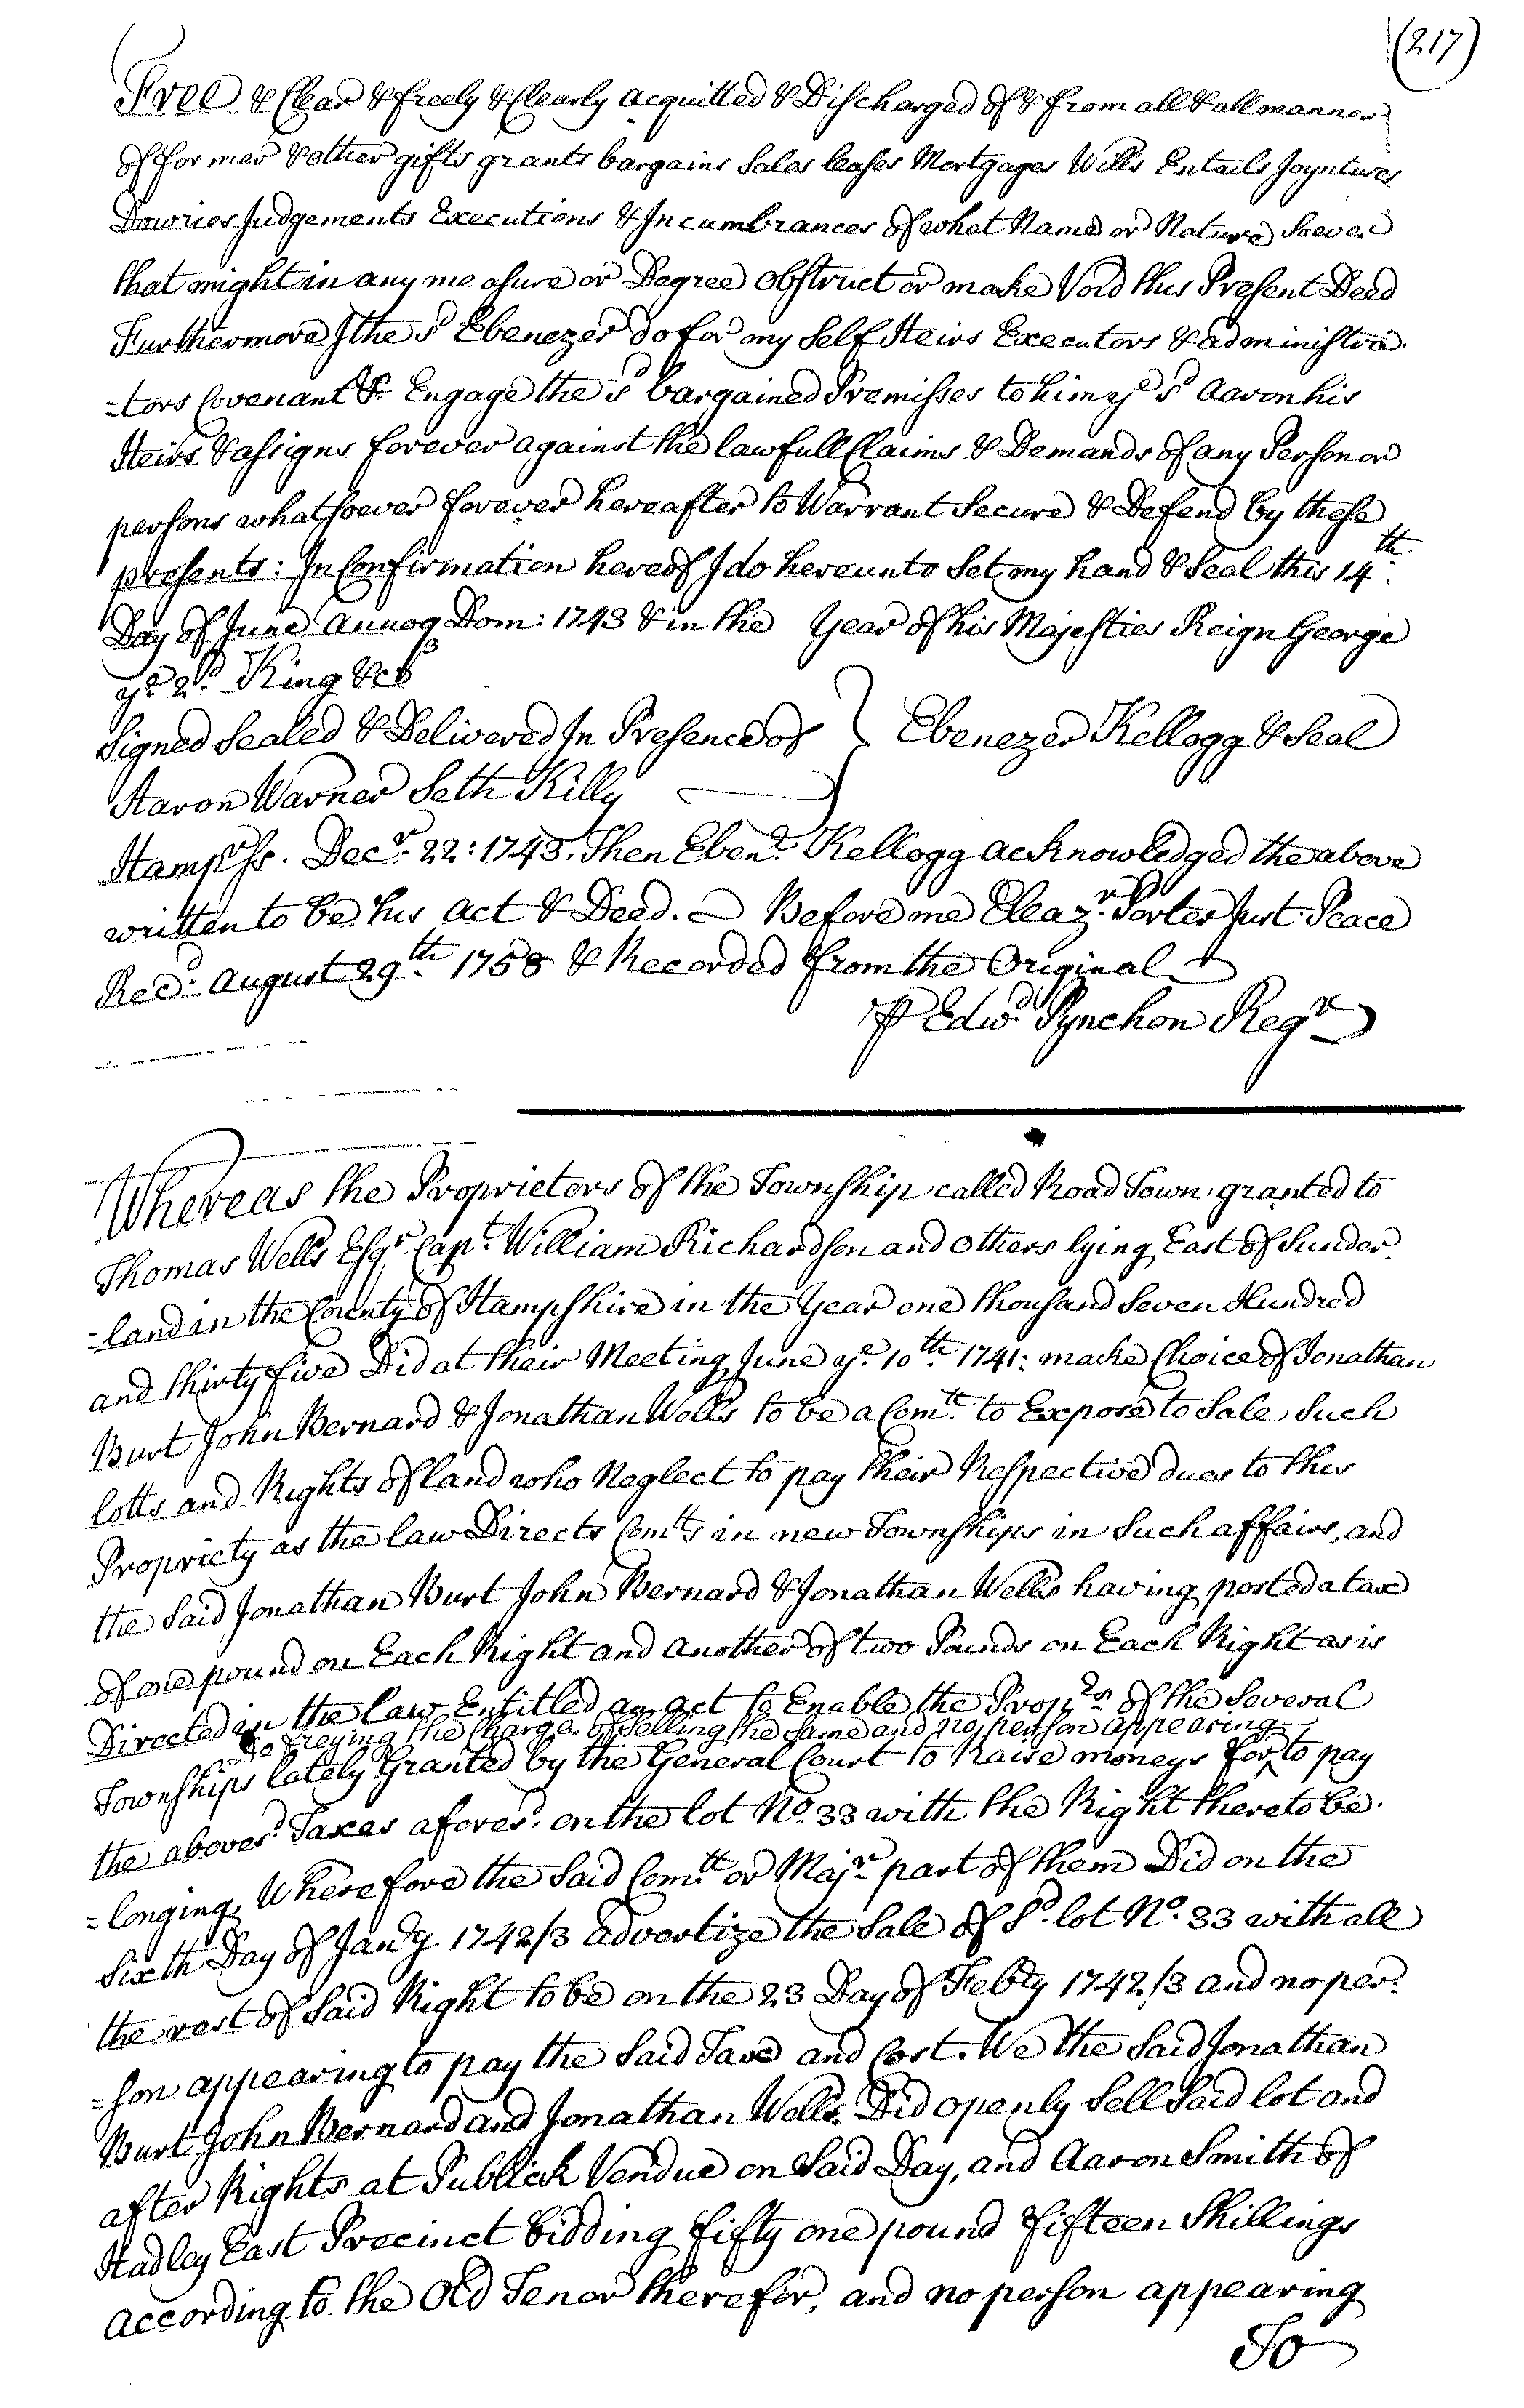 (217)
Free & Clear & freely & Clearly acquitted & Discharged of & from all & all manner
of former & other gifts grants bargains Sales leases Mortgages Wills Entails Joyntures
Dowries Judgements Executions & Incumbrances of what Name or Nature Soever
that might in any measure or Degree obstruct or make Void this Present Deed
Furthermore I the sd Ebenezer do for my Self Heirs Executors & administra-
-tors Covenant & Engage the sd bargained Premisses to him ye sd Aaron his
Heirs & assigns forever against the lawfull Claims & Demands of any Person or
persons whatsoever forever hereafter to Warrant Secure & Defend by these
presents: In Confirmation hereof I do hereunto Set my hand & Seal this 14th
Day of June Annoq Dom: 1743 & in the Year of his Majesties Reign George
ye 2d King &c
Signed Sealed & Delivered In Presence of } Ebenezer Kellogg & Seal
Aaron Warner Seth Killy
Hampr Ss. Decr 22: 1743. Then Ebenr Kellogg acknowledged the above
written to be his act & Deed. Before me Eleazr Porter Just Peace
Recd August 29th 1758 & Recorded from the Original
P Edwd Pynchon Regr
Whereas the Proprietors of the Township called Road Town granted to
Thomas Wells Esqr Capt William Richardson and others lying East of Sunder-
-land in the County of Hampshire in the Year one thousand Seven Hundred
and thirty five Did at their Meeting June ye 10th 1741: make Choice of Jonathan
Burt John Bernard & Jonathan Wells to be a Comtt to Expose to Sale Such
lotts and Rights of land who Neglect to pay their Respective dues to this
Propriety as the law Directs Comtts in new Townships in Such affairs, and
the Said Jonathan Burt John Bernard & Jonathan Wells having posted a tax
of one pound on Each Right and another of two Pounds on Each Right as is
Directed in the law Entitled an act to Enable the Proprs of the Several
Defreying the Charge of Selling the Same and no person appearing
Townships lately Granted by the General Court to Raise moneys for ‸ to pay
the abovesd Taxes aforesd on the lot No. 33 with the Right thereto be-
=longing, Wherefore the Said Comtt or Majr part of them Did on the
Sixth Day of Jany 1742/3 advertize the Sale of Sd lot No. 33 with all
the rest of Said Right to be on the 23 Day of Febry 1742/3 and no per-
=son appearing to pay the Said Tax and Cost. We the Said Jonathan
Burt John Bernard and Jonathan Wells Did openly Sell Said lot and
after Rights at Publick Vendue on Said Day, and Aaron Smith of
Hadley East Precinct bidding fifty one pound fifteen Shillings
according to the Old Tenor therefor, and no person appearing
To